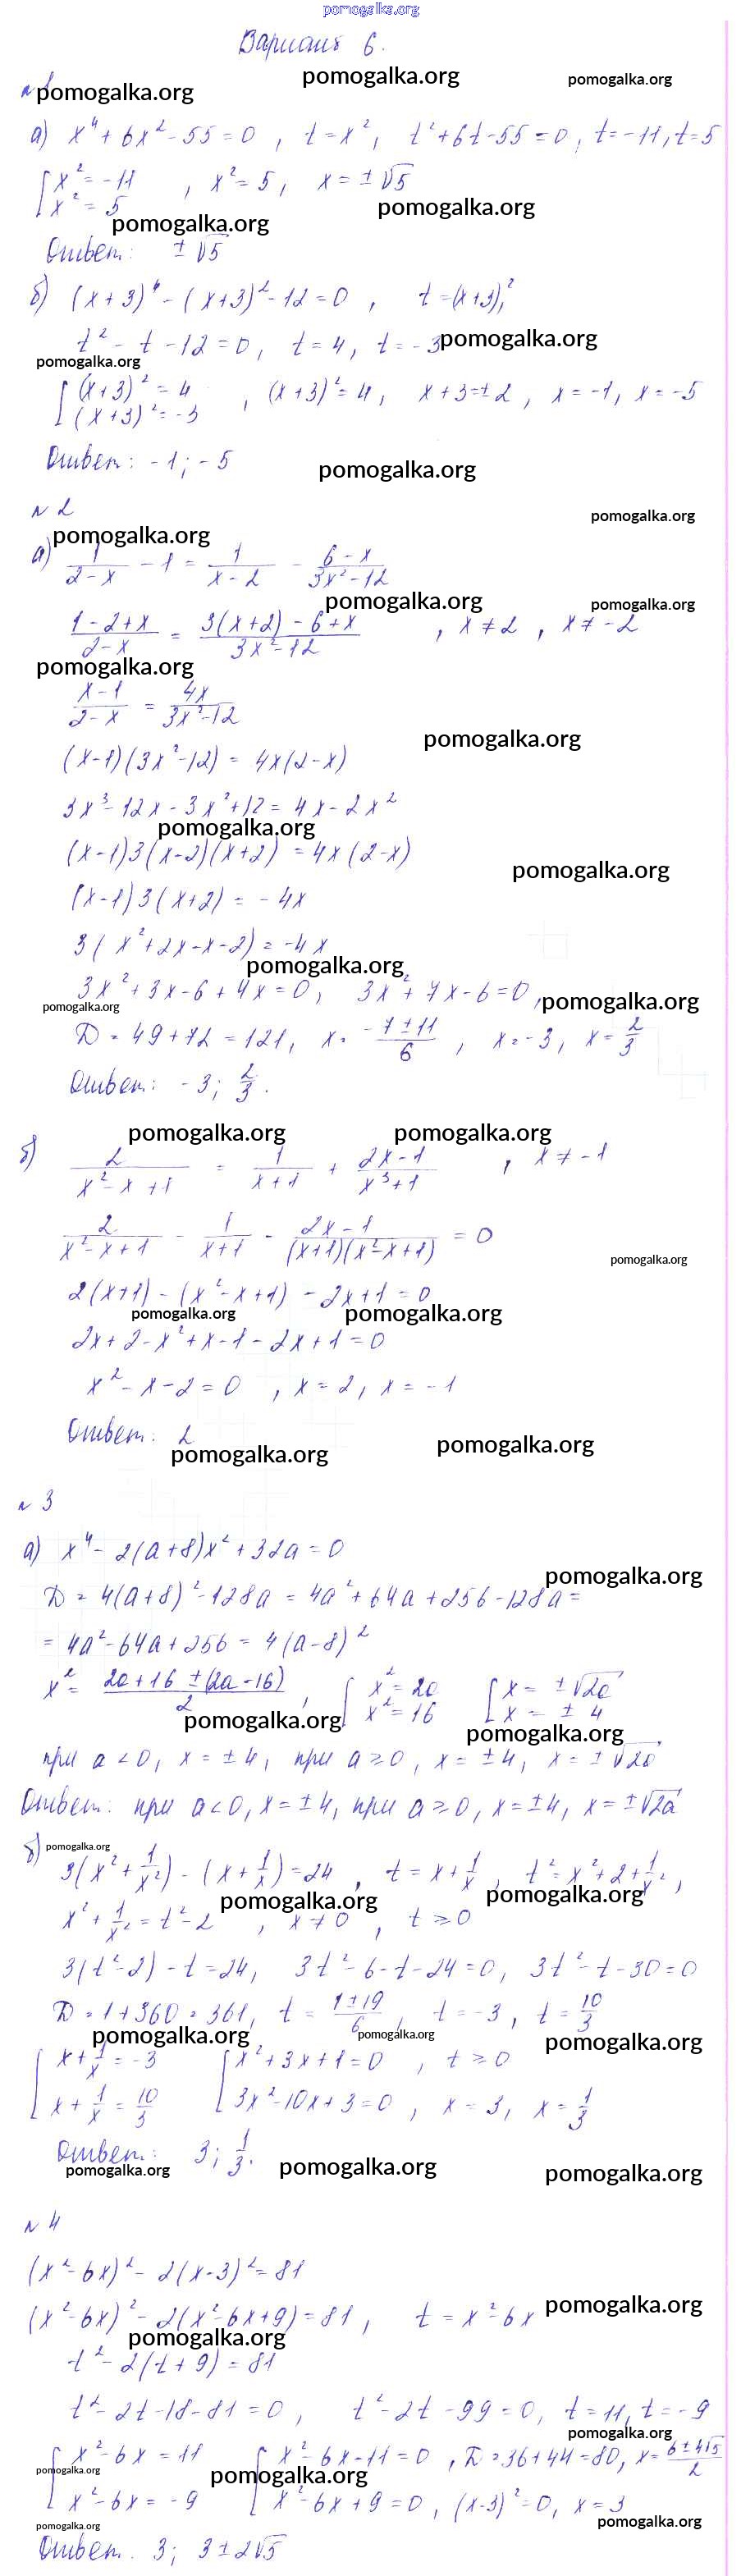 pomogalka.org
Вариант 6.
pomogalka.org pomogalka.org
№1 pomogalka.org
а) x⁴ + 6x² - 55 = 0 , t = x², t² + 6t - 55 = 0, t = -11, t = 5
[ x² = -11 , x² = 5, x = ±√5
x² = 5
pomogalka.org pomogalka.org
Ответ: ±√5
б) (x + 3)⁴ - (x + 3)² - 12 = 0 , t = (x+3)²,
t² - t - 12 = 0, t = 4, t = -3 pomogalka.org
pomogalka.org
[ (x+3)² = 4 , (x+3)² = 4, x + 3 = ±2, x = -1, x = -5
(x+3)² = -3
Ответ: -1; -5
pomogalka.org
№ 2 pomogalka.org
pomogalka.org
а) 1/(2-x) - 1 = 1/(x-2) - (6-x)/(3x²-12)
pomogalka.org pomogalka.org
(1-2+x)/(2-x) = (3(x+2)-6+x)/(3x²-12) , x ≠ 2 , x ≠ -2
pomogalka.org
(x-1)/(2-x) = 4x/(3x²-12)
pomogalka.org
(x-1)(3x²-12) = 4x(2-x)
3x³ - 12x - 3x² + 12 = 4x - 2x²
pomogalka.org
(x-1)3(x-2)(x+2) = 4x(2-x)
pomogalka.org
(x-1)3(x+2) = -4x
3(x² + 2x - x - 2) = -4x
pomogalka.org
3x² + 3x - 6 + 4x = 0, 3x² + 7x - 6 = 0, pomogalka.org
pomogalka.org
D = 49 + 72 = 121, x = (-7±11)/6 , x = -3, x = 2/3
Ответ: -3; 2/3.
pomogalka.org pomogalka.org
б) 2/(x²-x+1) = 1/(x+1) + (2x-1)/(x³+1) , x ≠ -1
2/(x²-x+1) - 1/(x+1) - (2x-1)/((x+1)(x²-x+1)) = 0
pomogalka.org
2(x+1) - (x²-x+1) - 2x + 1 = 0
pomogalka.org pomogalka.org
2x + 2 - x² + x - 1 - 2x + 1 = 0
x² - x - 2 = 0 , x = 2, x = -1
Ответ: 2
pomogalka.org pomogalka.org
№ 3
а) x⁴ - 2(a+8)x² + 32a = 0
pomogalka.org
D = 4(a+8)² - 128a = 4a² + 64a + 256 - 128a =
= 4a² - 64a + 256 = 4(a-8)²
x² = (2a+16 ± (2a-16))/2 , [ x² = 2a [ x = ±√2a
x² = 16 x = ± 4
pomogalka.org pomogalka.org
при a < 0, x = ±4, при a ≥ 0, x = ±4, x = ±√2a
Ответ: при a < 0, x = ±4, при a ≥ 0, x = ±4, x = ±√2a
pomogalka.org
б) 3(x² + 1/x²) - (x + 1/x) = 24 , t = x + 1/x , t² = x² + 2 + 1/x²,
pomogalka.org pomogalka.org
x² + 1/x² = t² - 2 , x ≠ 0 , t ≥ 0
3(t²-2) - t = 24, 3t² - 6 - t - 24 = 0, 3t² - t - 30 = 0
D = 1 + 360 = 361, t = (1±19)/6, t = -3, t = 10/3
pomogalka.org pomogalka.org pomogalka.org
[ x + 1/x = -3 [ x² + 3x + 1 = 0 , t ≥ 0
x + 1/x = 10/3 3x² - 10x + 3 = 0 , x = 3, x = 1/3
Ответ: 3; 1/3.
pomogalka.org pomogalka.org pomogalka.org
№ 4
(x²-6x)² - 2(x-3)² = 81
(x²-6x)² - 2(x²-6x+9) = 81 , t = x²-6x pomogalka.org
pomogalka.org
t² - 2(t+9) = 81
t² - 2t - 18 - 81 = 0, t² - 2t - 99 = 0, t = 11, t = -9
pomogalka.org
[ x² - 6x = 11 [ x² - 6x - 11 = 0 , D = 36 + 44 = 80, x = (6±4√5)/2
pomogalka.org pomogalka.org
x² - 6x = -9 x² - 6x + 9 = 0, (x-3)² = 0, x = 3
pomogalka.org pomogalka.org
Ответ. 3; 3 ± 2√5